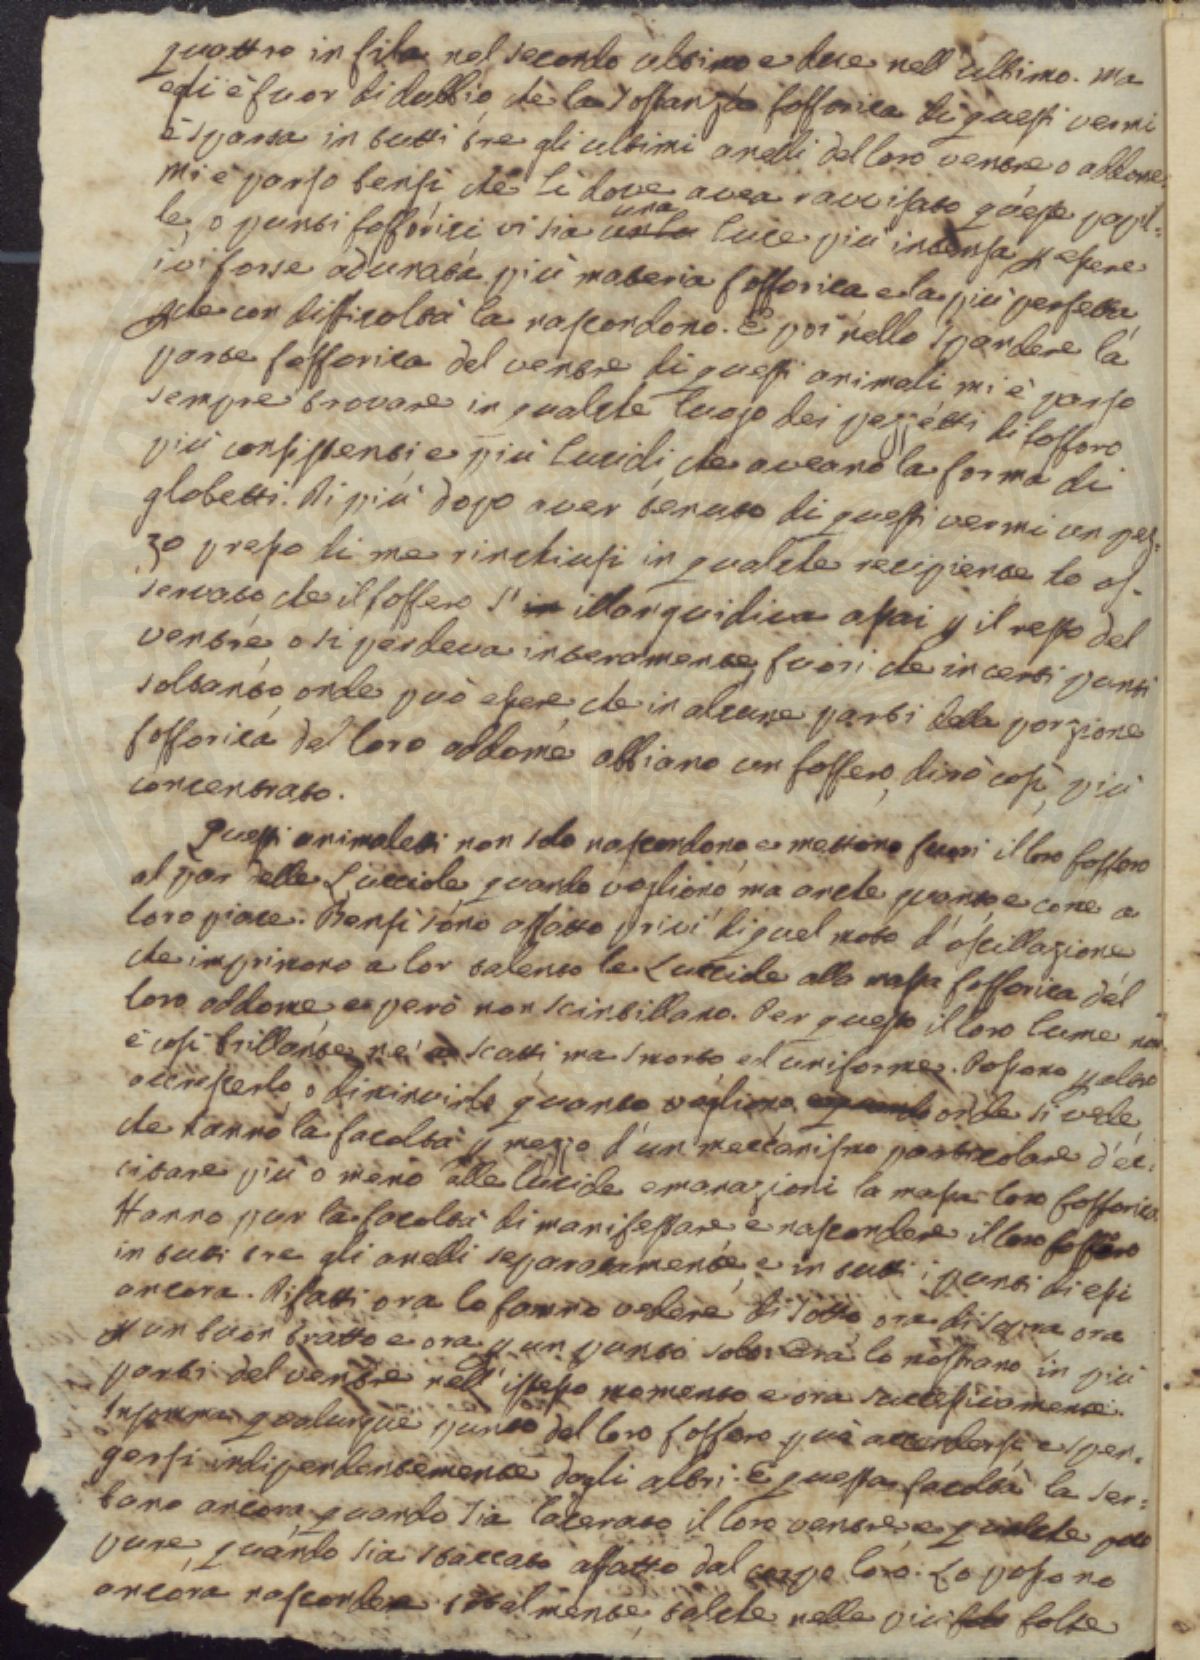 quattro in fila nel secondo ultimo e due nell'ultimo. Ma
egli è fuor di dubbio, che la sostanza fosforica di questi vermi
è sparsa in tutti tre gli ultimi anelli del loro ventre o addome.
Mi è parso bensì, che lì dove avea ravvisato queste papil=
le, o punti fosforici vi sia una luce più intensa p essere
ivi forse adunata più materia fosforica e la più perfetta
che con difficoltà la nascondono. E poi nello spandere la
parte fosforica del ventre di questi animali mi è parso
sempre trovare in qualche luogo dei pezzetti di fosforo
più consistenti e più lucidi, che aveano la forma di
globetti. Di più dopo aver tenuto di questi vermi un pez=
zo presso di me rinchiusi in qualche recipiente ho os=
servato che il fosforo s' illanguidiva assai p il resto del
ventre, o si perdeva interamente, fuori che in certi punti
soltanto, onde può essere, che in alcune parti della porzione
fosforica del loro addome abbiano un fosforo, dirò così, più
concentrato.
Questi animaletti non solo nascondono, e mettono fuori il loro fosforo
al par delle Lucciole quando vogliono, ma anche quanto, e come a
loro piace. Bensì sono affatto privi di quel moto d'oscillazione
che imprimono a lor talento le Lucciole alla massa fosforica del
loro addome, e però non scintillano. Per questo il loro lume non
è così brillante, nè a scatti, ma smorto, ed uniforme. Possono p altro
accrescerlo, o diminuirlo quanto vogliono onde si vede,
che hanno la facoltà p mezzo d'un meccanismo particolare d'ec=
citare più o meno alle lucide emanazioni la massa loro fosforica.
Hanno pur la facoltà di manifestare e nascondere il loro fosforo
in tutti tre gli anelli separatamente, e in tutti i punti di essi
ancora. Difatti ora lo fanno vedere di sotto, ora di sopra ora
p un buon tratto e ora p un punto solo. Ora lo mostrano in più
parti del ventre nell'istesso momento, e ora successivamente.
Insomma qualunque punto del loro fosforo può accendersi, e spen=
gersi indipendentemente dagli altri. E questa facoltà la ser=
bano ancora quando sia lacerato il loro ventre, e qualche poco
pure, quando sia staccato affatto dal corpo loro. Lo possono
ancora nascondere totalmente, talchè nelle più folte